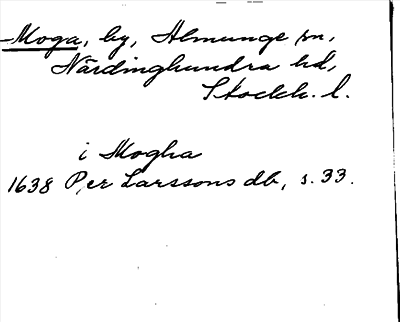 Moga, by, Almunge sn,
Närdinghundra hd,
Stockh. l.
i Mogha
1638 Per Larssons db, s. 33.